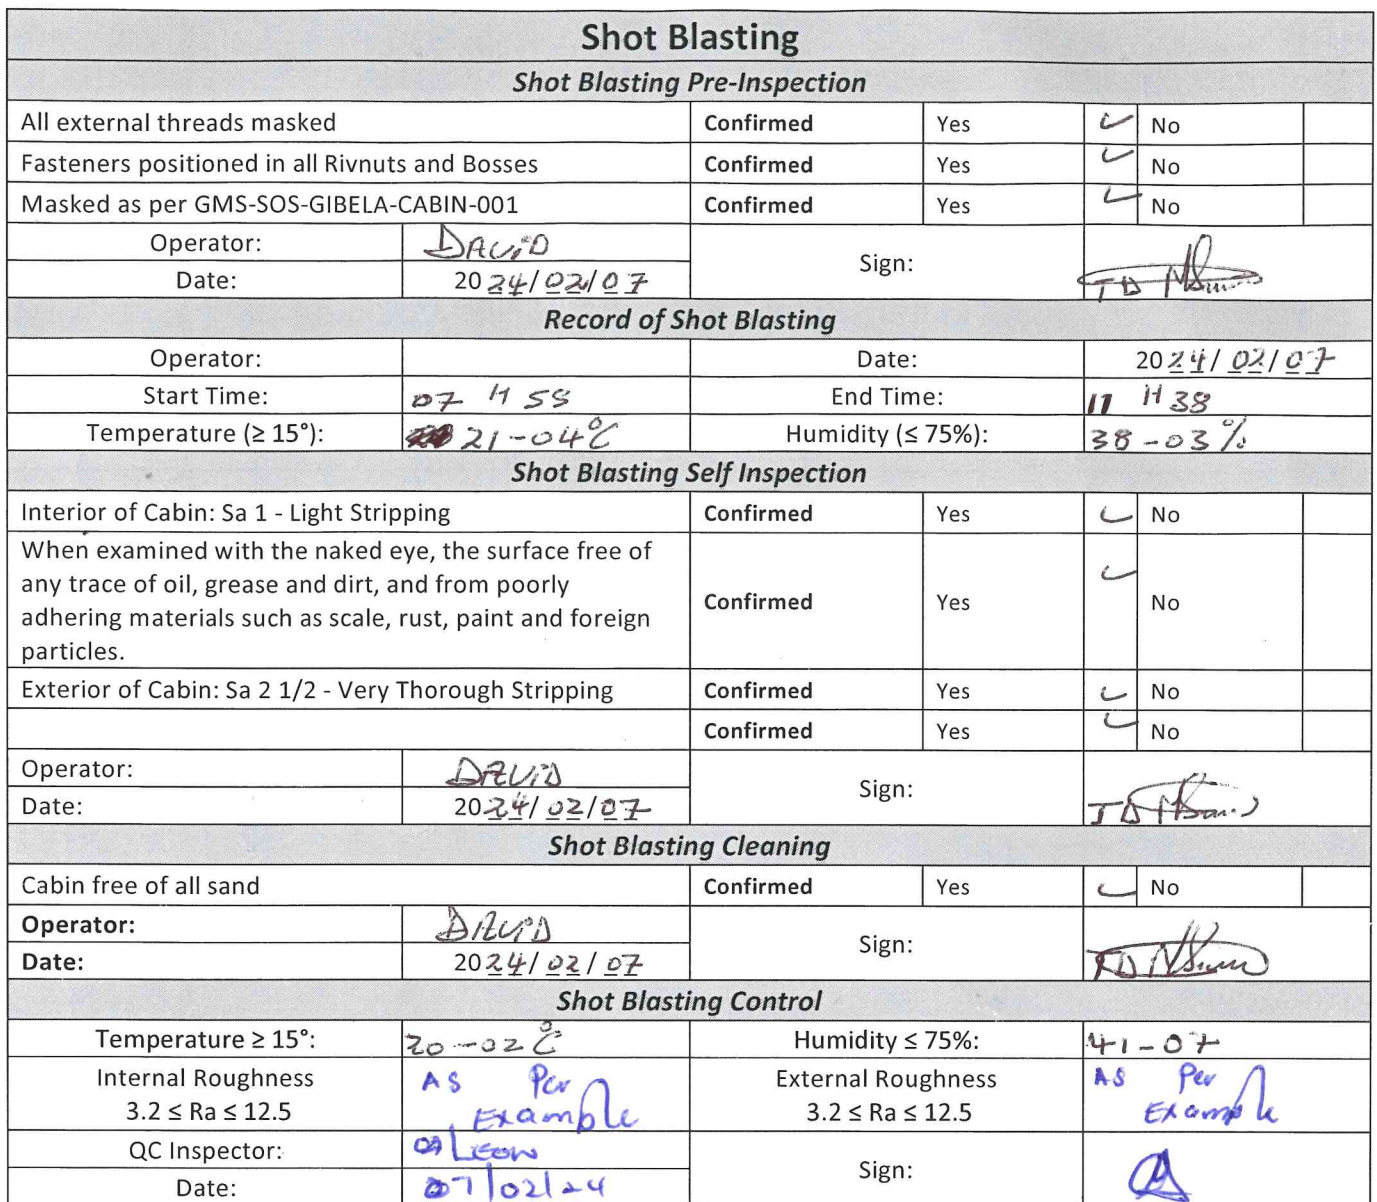 Shot Blasting
Shot Blasting Pre-Inspection
All external threads masked Confirmed Yes ✓ No
Fasteners positioned in all Rivnuts and Bosses Confirmed Yes ✓ No
Masked as per GMS-SOS-GIBELA-CABIN-001 Confirmed Yes ✓ No
Operator: DAViD Sign: TD
Date: 2024/02/07
Record of Shot Blasting
Operator: Date: 2024/02/07
Start Time: 07 H 55 End Time: 11 H 38
Temperature (≥ 15°): 21-04°C Humidity (≤ 75%): 38-03%
Shot Blasting Self Inspection
Interior of Cabin: Sa 1 - Light Stripping Confirmed Yes ✓ No
When examined with the naked eye, the surface free of
any trace of oil, grease and dirt, and from poorly
adhering materials such as scale, rust, paint and foreign
particles.
Confirmed Yes ✓ No
Exterior of Cabin: Sa 2 1/2 - Very Thorough Stripping Confirmed Yes ✓ No
Confirmed Yes ✓ No
Operator: DAViD Sign: TD
Date: 2024/02/07
Shot Blasting Cleaning
Cabin free of all sand Confirmed Yes ✓ No
Operator: DAViD Sign: TD
Date: 2024/02/07
Shot Blasting Control
Temperature ≥ 15°: 20-02°C Humidity ≤ 75%: 41-07
Internal Roughness AS Per External Roughness AS Per
3.2 ≤ Ra ≤ 12.5 Example 3.2 ≤ Ra ≤ 12.5 Example
QC Inspector: LEON Sign:
Date: 07/02/24